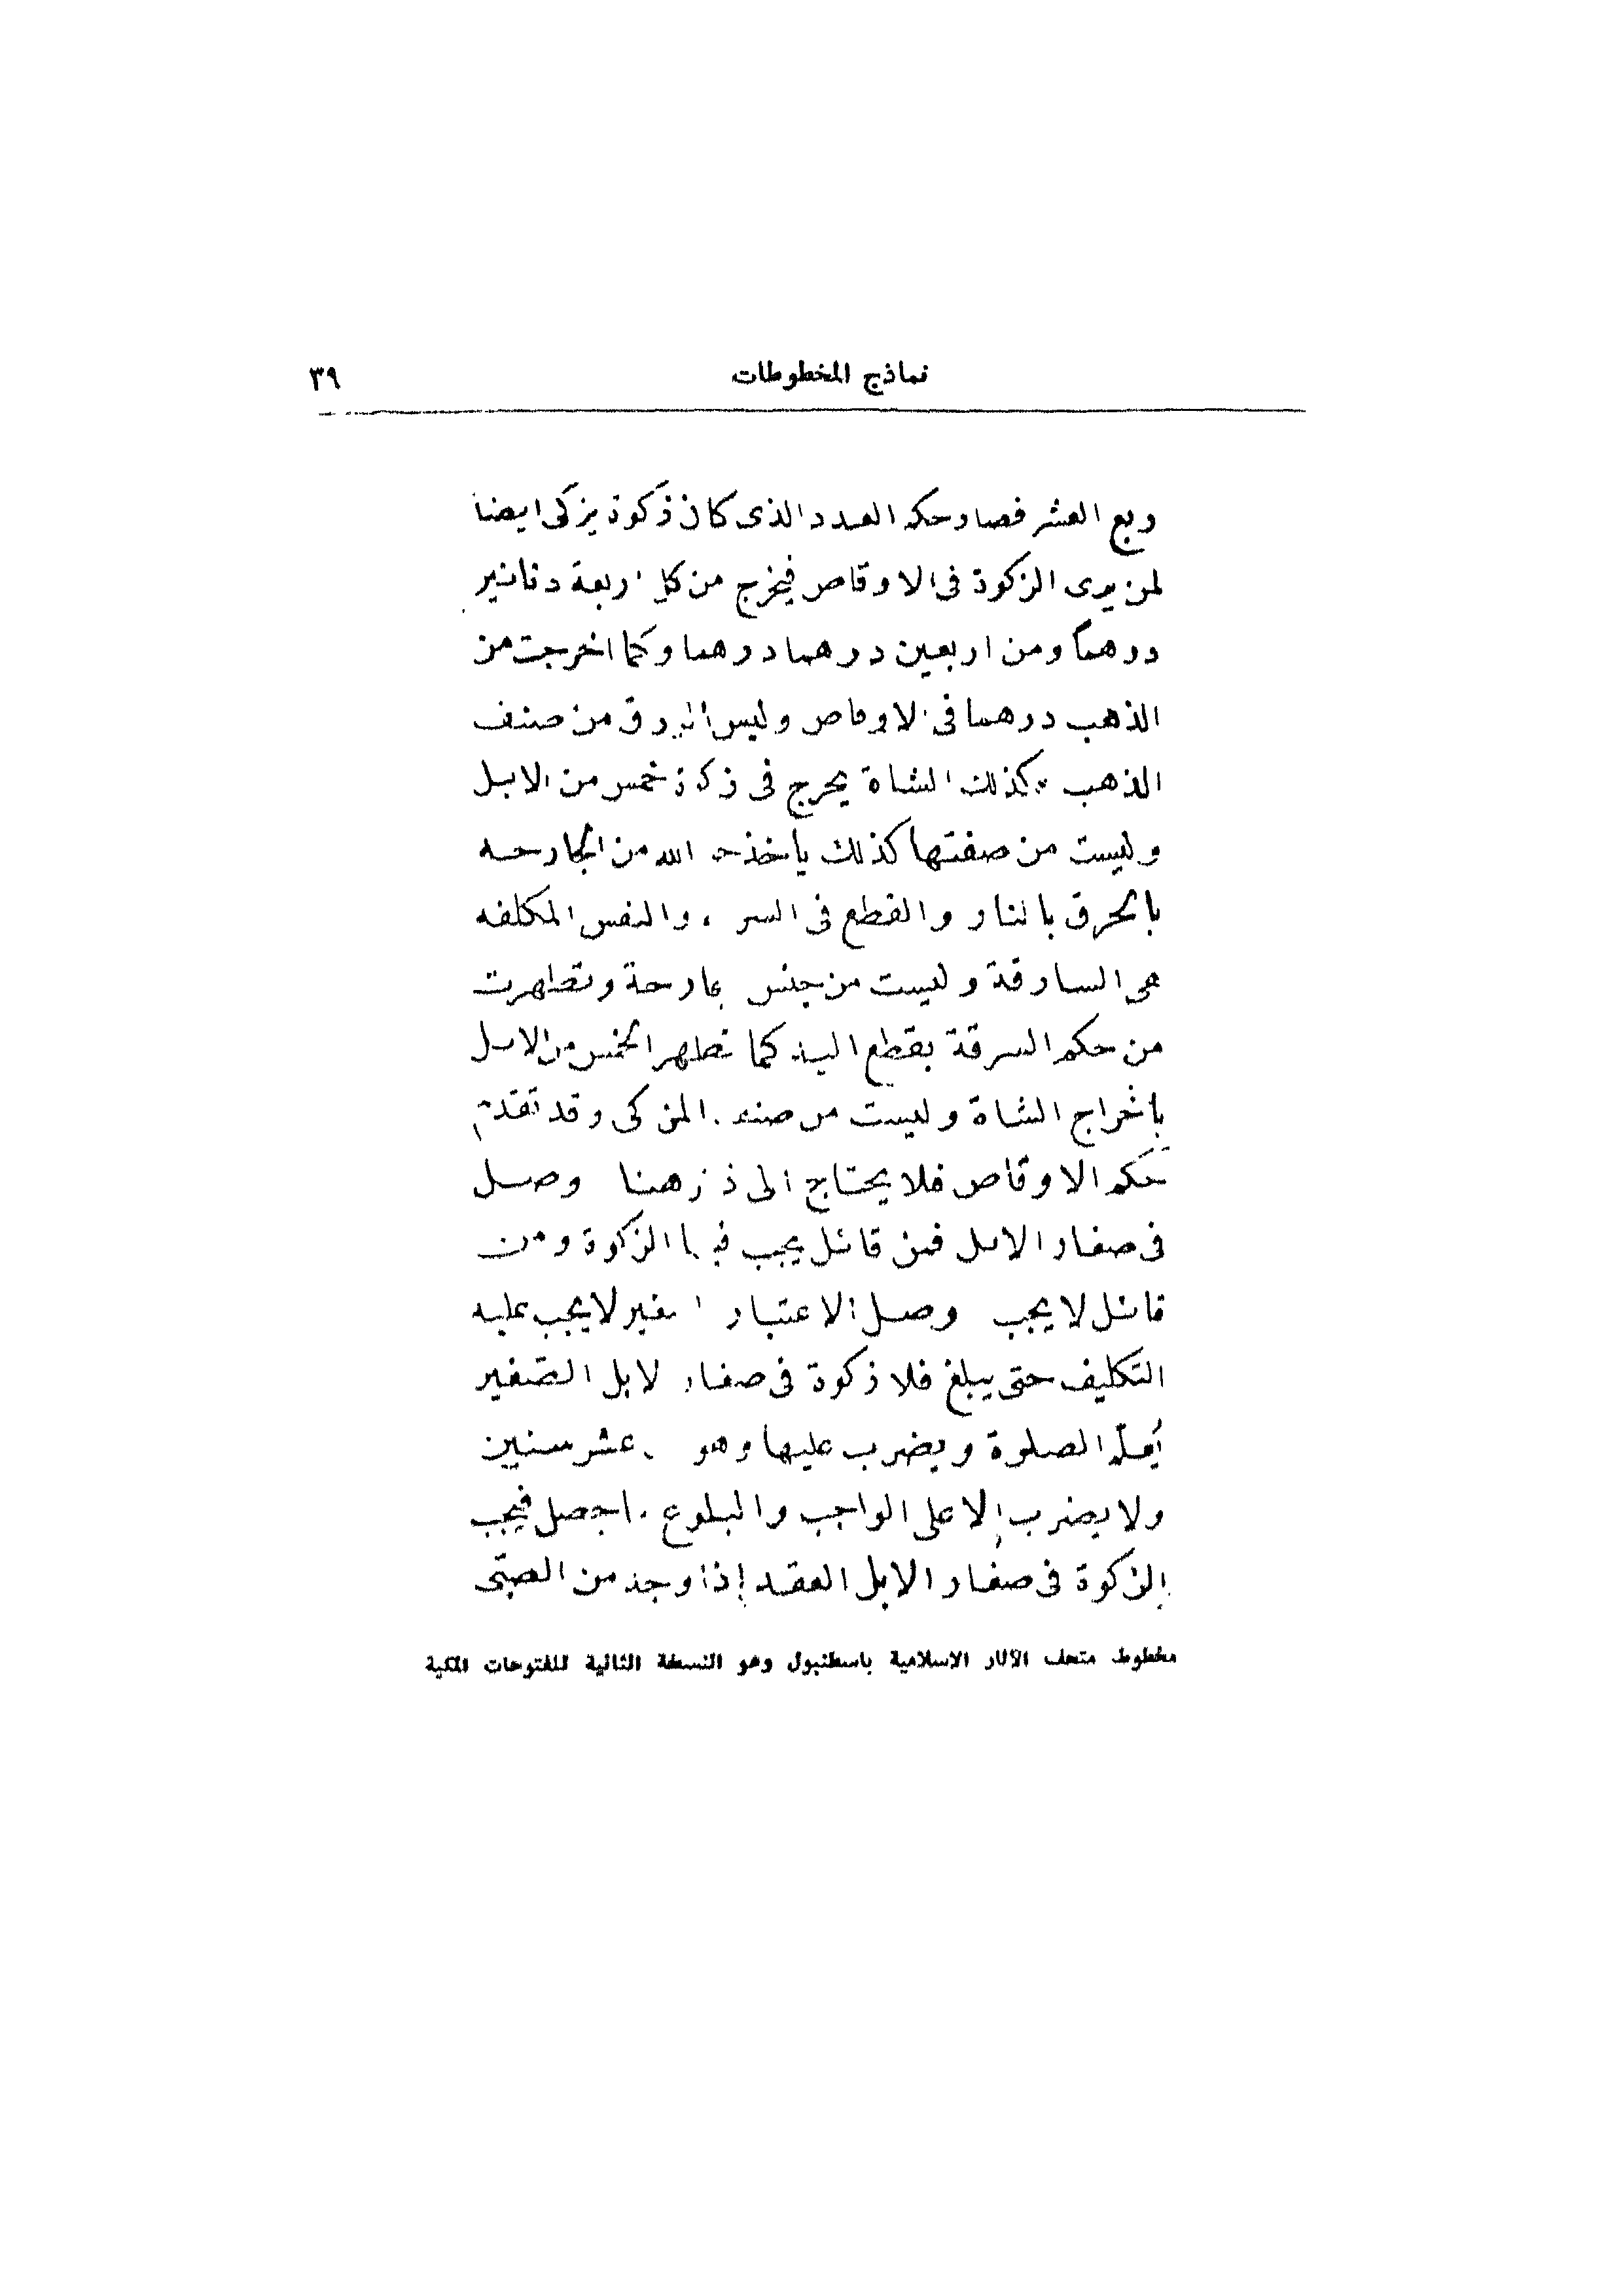 نماذج المخطوطات
٣٩
ربع العشر فصار حكم العدد الذى كان زكوة يزكى ايضا
لمن يرى الزكوة فى الاوقاص فيخرج من كل اربعة دنانير
درهمًا ومن اربعين درهما درهما وكما اخرجت من
الذهب درهما فى الاوقاص وليس الورق من صنف
الذهب كذلك الشاة يخرج فى زكاة خمس من الابل
وليست من صفتها كذلك ياخذ الله من الجارحه
بالحرق بالنار والقطع فى السرقة والنفس المكلفه
هى السارقة وليست من جنس الجارحة وتطهرت
من حكم السرقة بقطع اليد كما تطهر الخمس من الابل
باخراج الشاة وليست من صنف المزكى وقد تقدّم
حكم الاوقاص فلا يحتاج الى ذكره هنا وصل
فى صغار الابل فمن قائل يجب فيها الزكوة ومن
قائل لا يجب وصل الاعتبار الصغير لا يجب عليه
التكليف حتى يبلغ فلا زكوة فى صغار الابل الصّغير
يُعلّم الصلوة ويضرب عليها وهو عشر سنين
ولا يضرب إلا على الواجب والبلوغ ما حصل فيجب
الزكوة فى صغار الابل العقد إذا وجد من الصبّى
مخطوط متحف الآثار الاسلامية باسطنبول وهو النسخة الثانية للفتوحات المكية